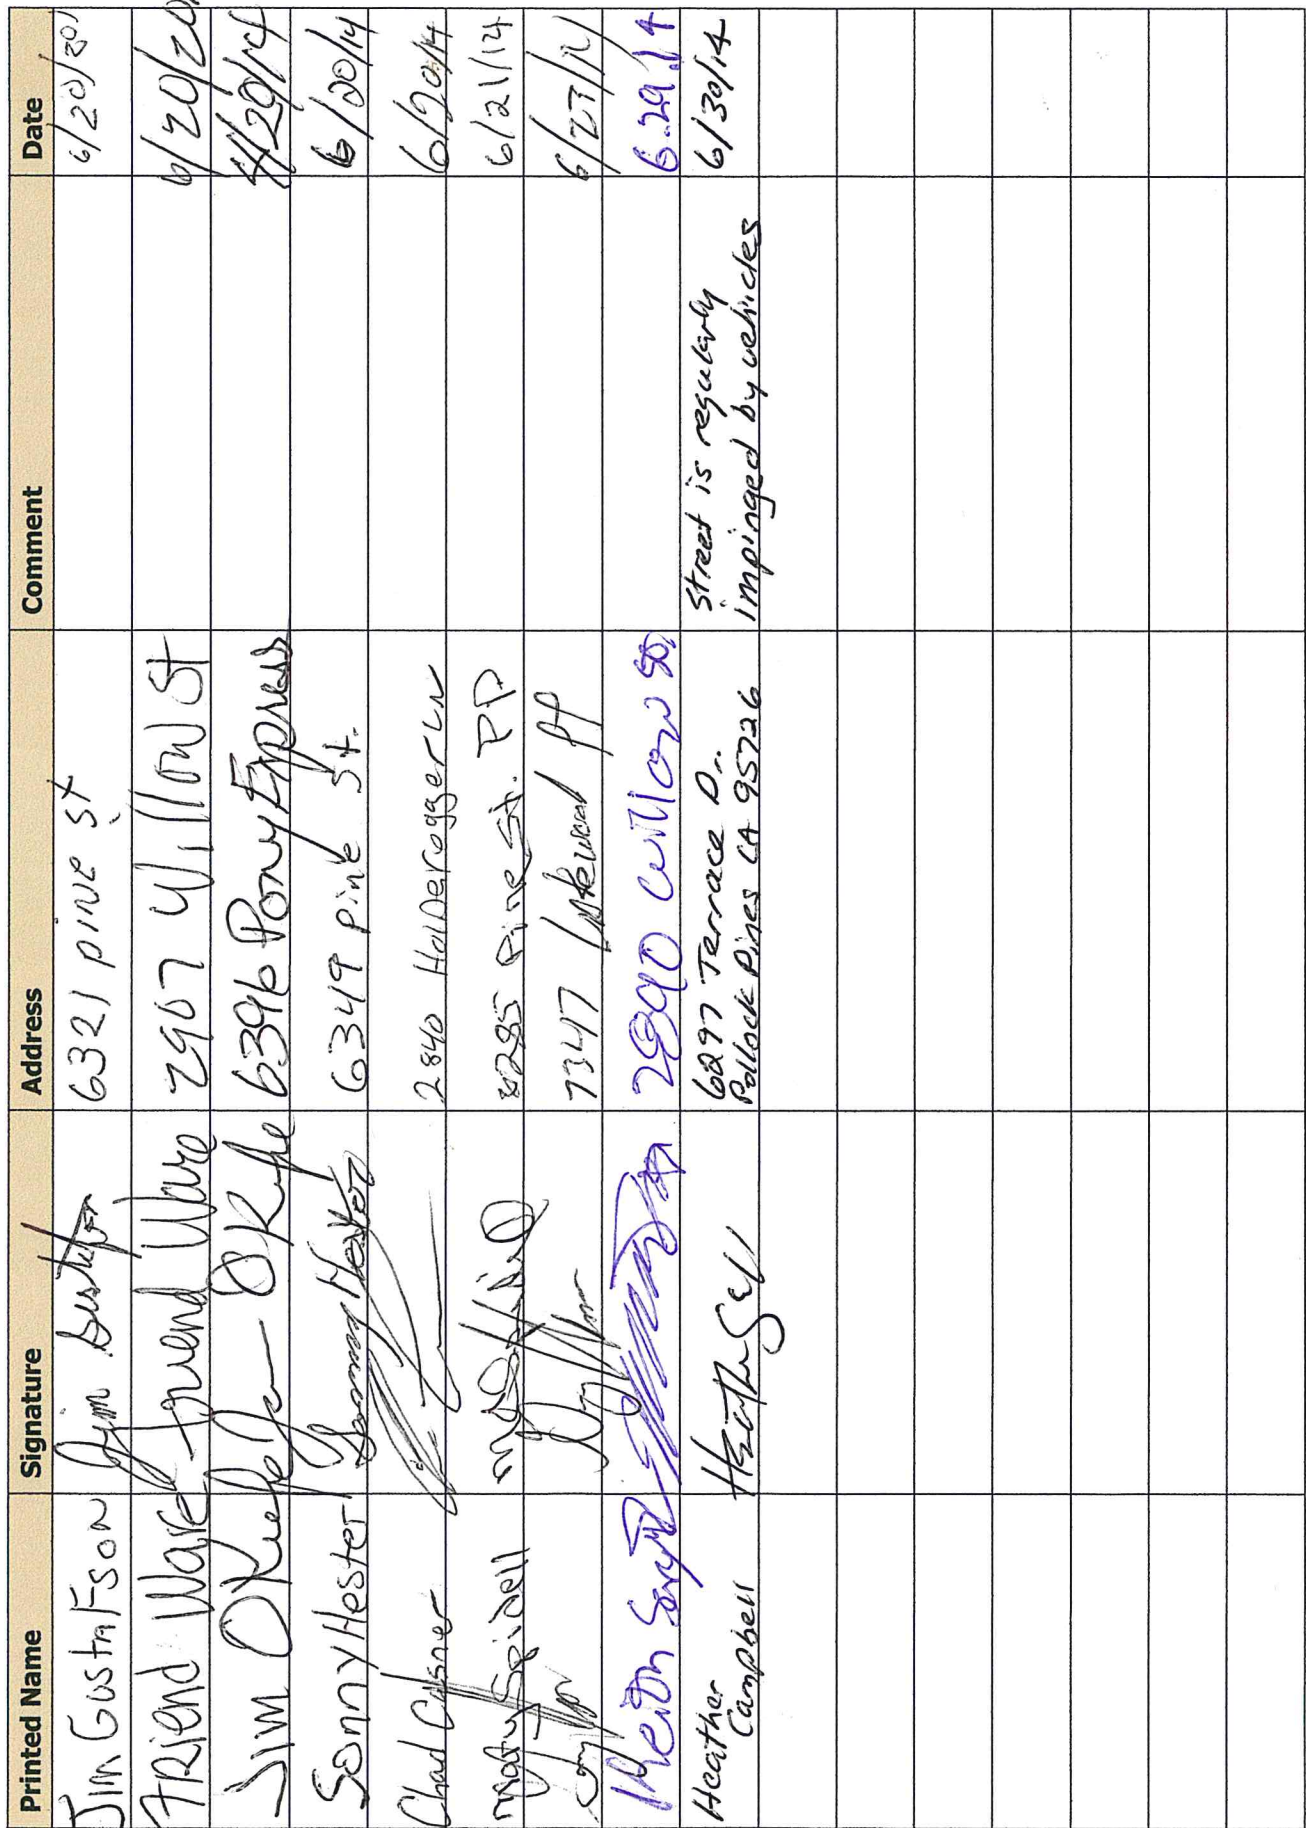 Printed Name Signature Address Comment Date
Jim Gustafson Jim Gustafson 6321 pine st 6/20/201
Friend Ware Friend Ware 2907 Willow St 6/20/20
Jim OKeefe Jim OKeefe 6396 Pony Express 6/20/14
Sonny Hester Sonny Hester 6349 Pine St. 6/20/14
Chad Casner 2840 Halderogger LN 6/20/14
Mary Spidell 6285 Pine St. PP 6/21/14
7347 PP 6/27/14
2890 Willow St. 6.29.14
Heather Campbell 6297 Terrace Dr. Street is regularly 6/30/14
Pollock Pines CA 95726 impinged by vehicles